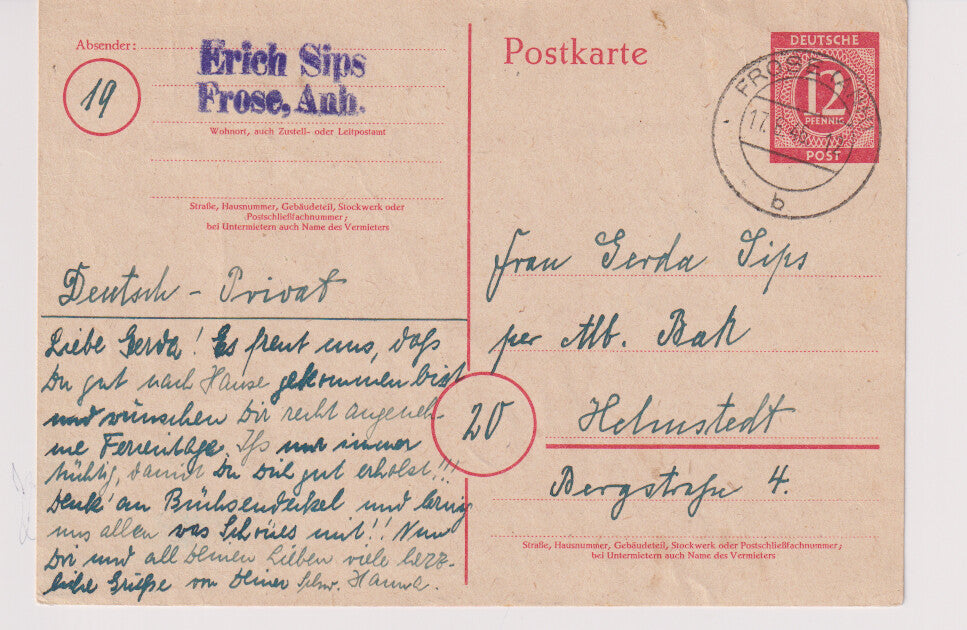 Absender:
Erich Sips
Frose, Anh.
19
Wohnort, auch Zustell- oder Leitpostamt
Straße, Hausnummer, Gebäudeteil, Stockwerk oder
Postschließfachnummer;
bei Untermietern auch Name des Vermieters
Postkarte
DEUTSCHE
12
PFENNIG
POST
FROSE
17.
b
Deutsch - Privat
Liebe Gerda! Es freut uns, daß
Du gut nach Hause gekommen bist
und wünschen Dir recht angeneh-
me Ferientage. Iß nur immer
tüchtig, damit Du Dich gut erholst!!!
Denk' an Büchsendeckel und bring
uns allen was Schönes mit!! Nun
Dir und all Deinen Lieben viele herz-
liche Grüße von Deiner Schw. Hanna.
Frau Gerda Sips
per Alb. Bak
20
Helmstedt
Bergstraße 4.
Straße, Hausnummer, Gebäudeteil, Stockwerk oder Postschließfachnummer;
bei Untermietern auch Name des Vermieters